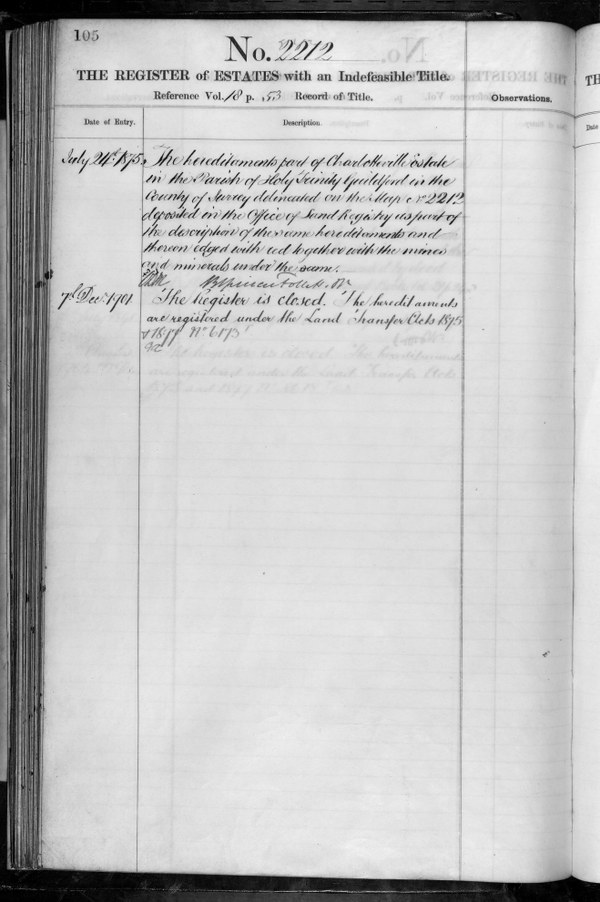 105
No. 2212
THE REGISTER of ESTATES with an Indefeasible Title.
Reference Vol. 18 p. 53 Record of Title.
Observations.
Date of Entry.
Description.
July 24th 1875
The hereditaments part of Charlotteville Estate
in the Parish of Holy Trinity Guildford in the
County of Surrey delineated on the Map No 2212
deposited in the Office of Land Registry as part of
the description of the same hereditaments and
thereon edged with red together with the mines
and minerals under the same.
Follett
7th Dec. 1901
The Register is closed. The hereditaments
are registered under the Land Transfer Acts 1875
& 1897 No
TH
Date